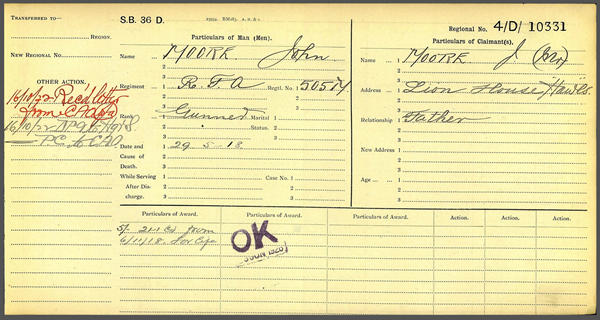 TRANSFERRED TO—
REGION.
NEW REGIONAL No.
OTHER ACTION.
16/10/22 Recd letter
from
16/10/22
S.B. 36 D.
Particulars of Man (Men).
Name 1 MOORE John
2
3
Regiment 1 R.F.A Regtl. No. 1 50574
2 2
3 3
Rank 1 Gunner Marital 1
2 Status. 2
3 3
Date and 1 29.5.18.
Cause of 2
Death. 3
While Serving 1 Case No. 1
After Dis- 2 2
charge. 3 3
Regional No. 4/D/ 10331
Particulars of Claimant(s).
Name 1 MOORE J (Mr)
2
3
Address 1 Lion House
2
3
Relationship 1 Father
2
3
New Address 1
2
3
Age 1
2
3
Particulars of Award. Particulars of Award. Particulars of Award. Action. Action. Action.
5/- 21-1
6/11/18.
OK
JUN 1926